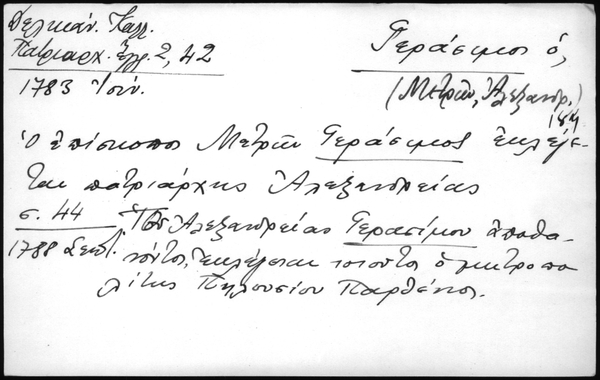 Δελικάν. Καλλ.
Πατριαρχ. Ἔγγρ. 2, 42
1783 Ἰουν.
Γεράσιμος ὁ,
(Μετρῶν, Ἀλεξανδρ.)
Ὁ ἐπίσκοπος Μετρῶν Γεράσιμος ἐκλέγε-
ται πατριάρχης Ἀλεξανδρείας
σ. 44 Τοῦ Ἀλεξανδρείας Γερασίμου ἀποθα-
1788 Σεπτ. νόντος, ἐκλέγεται τοιοῦτος ὁ μητροπο
λίτης Πηλουσίου Παρθένιος.